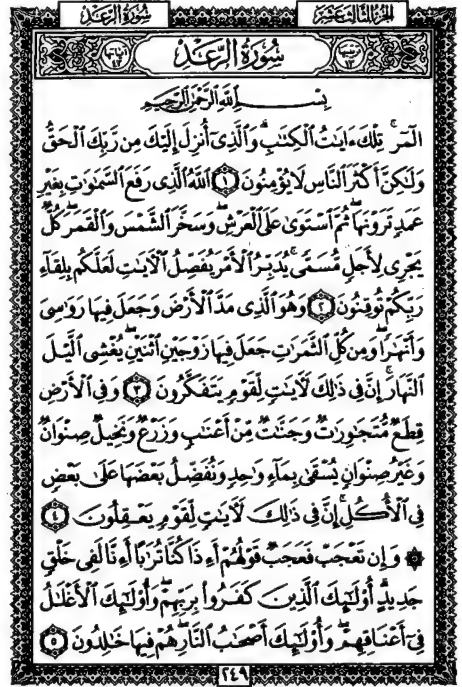 سُورَةُ الرَّعْدِ الجزء الثالث عشر
سُورَةُ الرَّعْدِ
بِسْمِ اللَّهِ الرَّحْمَٰنِ الرَّحِيمِ
الٓمٓرۚ تِلْكَ ءَايَٰتُ ٱلْكِتَٰبِۗ وَٱلَّذِىٓ أُنزِلَ إِلَيْكَ مِن رَّبِّكَ ٱلْحَقُّ
وَلَٰكِنَّ أَكْثَرَ ٱلنَّاسِ لَا يُؤْمِنُونَ ١ ٱللَّهُ ٱلَّذِى رَفَعَ ٱلسَّمَٰوَٰتِ بِغَيْرِ
عَمَدٍ تَرَوْنَهَاۖ ثُمَّ ٱسْتَوَىٰ عَلَى ٱلْعَرْشِۖ وَسَخَّرَ ٱلشَّمْسَ وَٱلْقَمَرَۖ كُلٌّ
يَجْرِى لِأَجَلٍ مُّسَمًّىۚ يُدَبِّرُ ٱلْأَمْرَ يُفَصِّلُ ٱلْءَايَٰتِ لَعَلَّكُم بِلِقَآءِ
رَبِّكُمْ تُوقِنُونَ ٢ وَهُوَ ٱلَّذِى مَدَّ ٱلْأَرْضَ وَجَعَلَ فِيهَا رَوَٰسِىَ
وَأَنْهَٰرًاۖ وَمِن كُلِّ ٱلثَّمَرَٰتِ جَعَلَ فِيهَا زَوْجَيْنِ ٱثْنَيْنِۖ يُغْشِى ٱلَّيْلَ
ٱلنَّهَارَۚ إِنَّ فِى ذَٰلِكَ لَءَايَٰتٍ لِّقَوْمٍ يَتَفَكَّرُونَ ٣ وَفِى ٱلْأَرْضِ
قِطَعٌ مُّتَجَٰوِرَٰتٌ وَجَنَّٰتٌ مِّنْ أَعْنَٰبٍ وَزَرْعٌ وَنَخِيلٌ صِنْوَانٌ
وَغَيْرُ صِنْوَانٍ يُسْقَىٰ بِمَآءٍ وَٰحِدٍ وَنُفَضِّلُ بَعْضَهَا عَلَىٰ بَعْضٍ
فِى ٱلْأُكُلِۚ إِنَّ فِى ذَٰلِكَ لَءَايَٰتٍ لِّقَوْمٍ يَعْقِلُونَ ٤
۞ وَإِن تَعْجَبْ فَعَجَبٌ قَوْلُهُمْ أَءِذَا كُنَّا تُرَٰبًا أَءِنَّا لَفِى خَلْقٍ
جَدِيدٍۗ أُو۟لَٰٓئِكَ ٱلَّذِينَ كَفَرُوا۟ بِرَبِّهِمْۖ وَأُو۟لَٰٓئِكَ ٱلْأَغْلَٰلُ
فِىٓ أَعْنَاقِهِمْۖ وَأُو۟لَٰٓئِكَ أَصْحَٰبُ ٱلنَّارِۖ هُمْ فِيهَا خَٰلِدُونَ ٥
٢٤٩